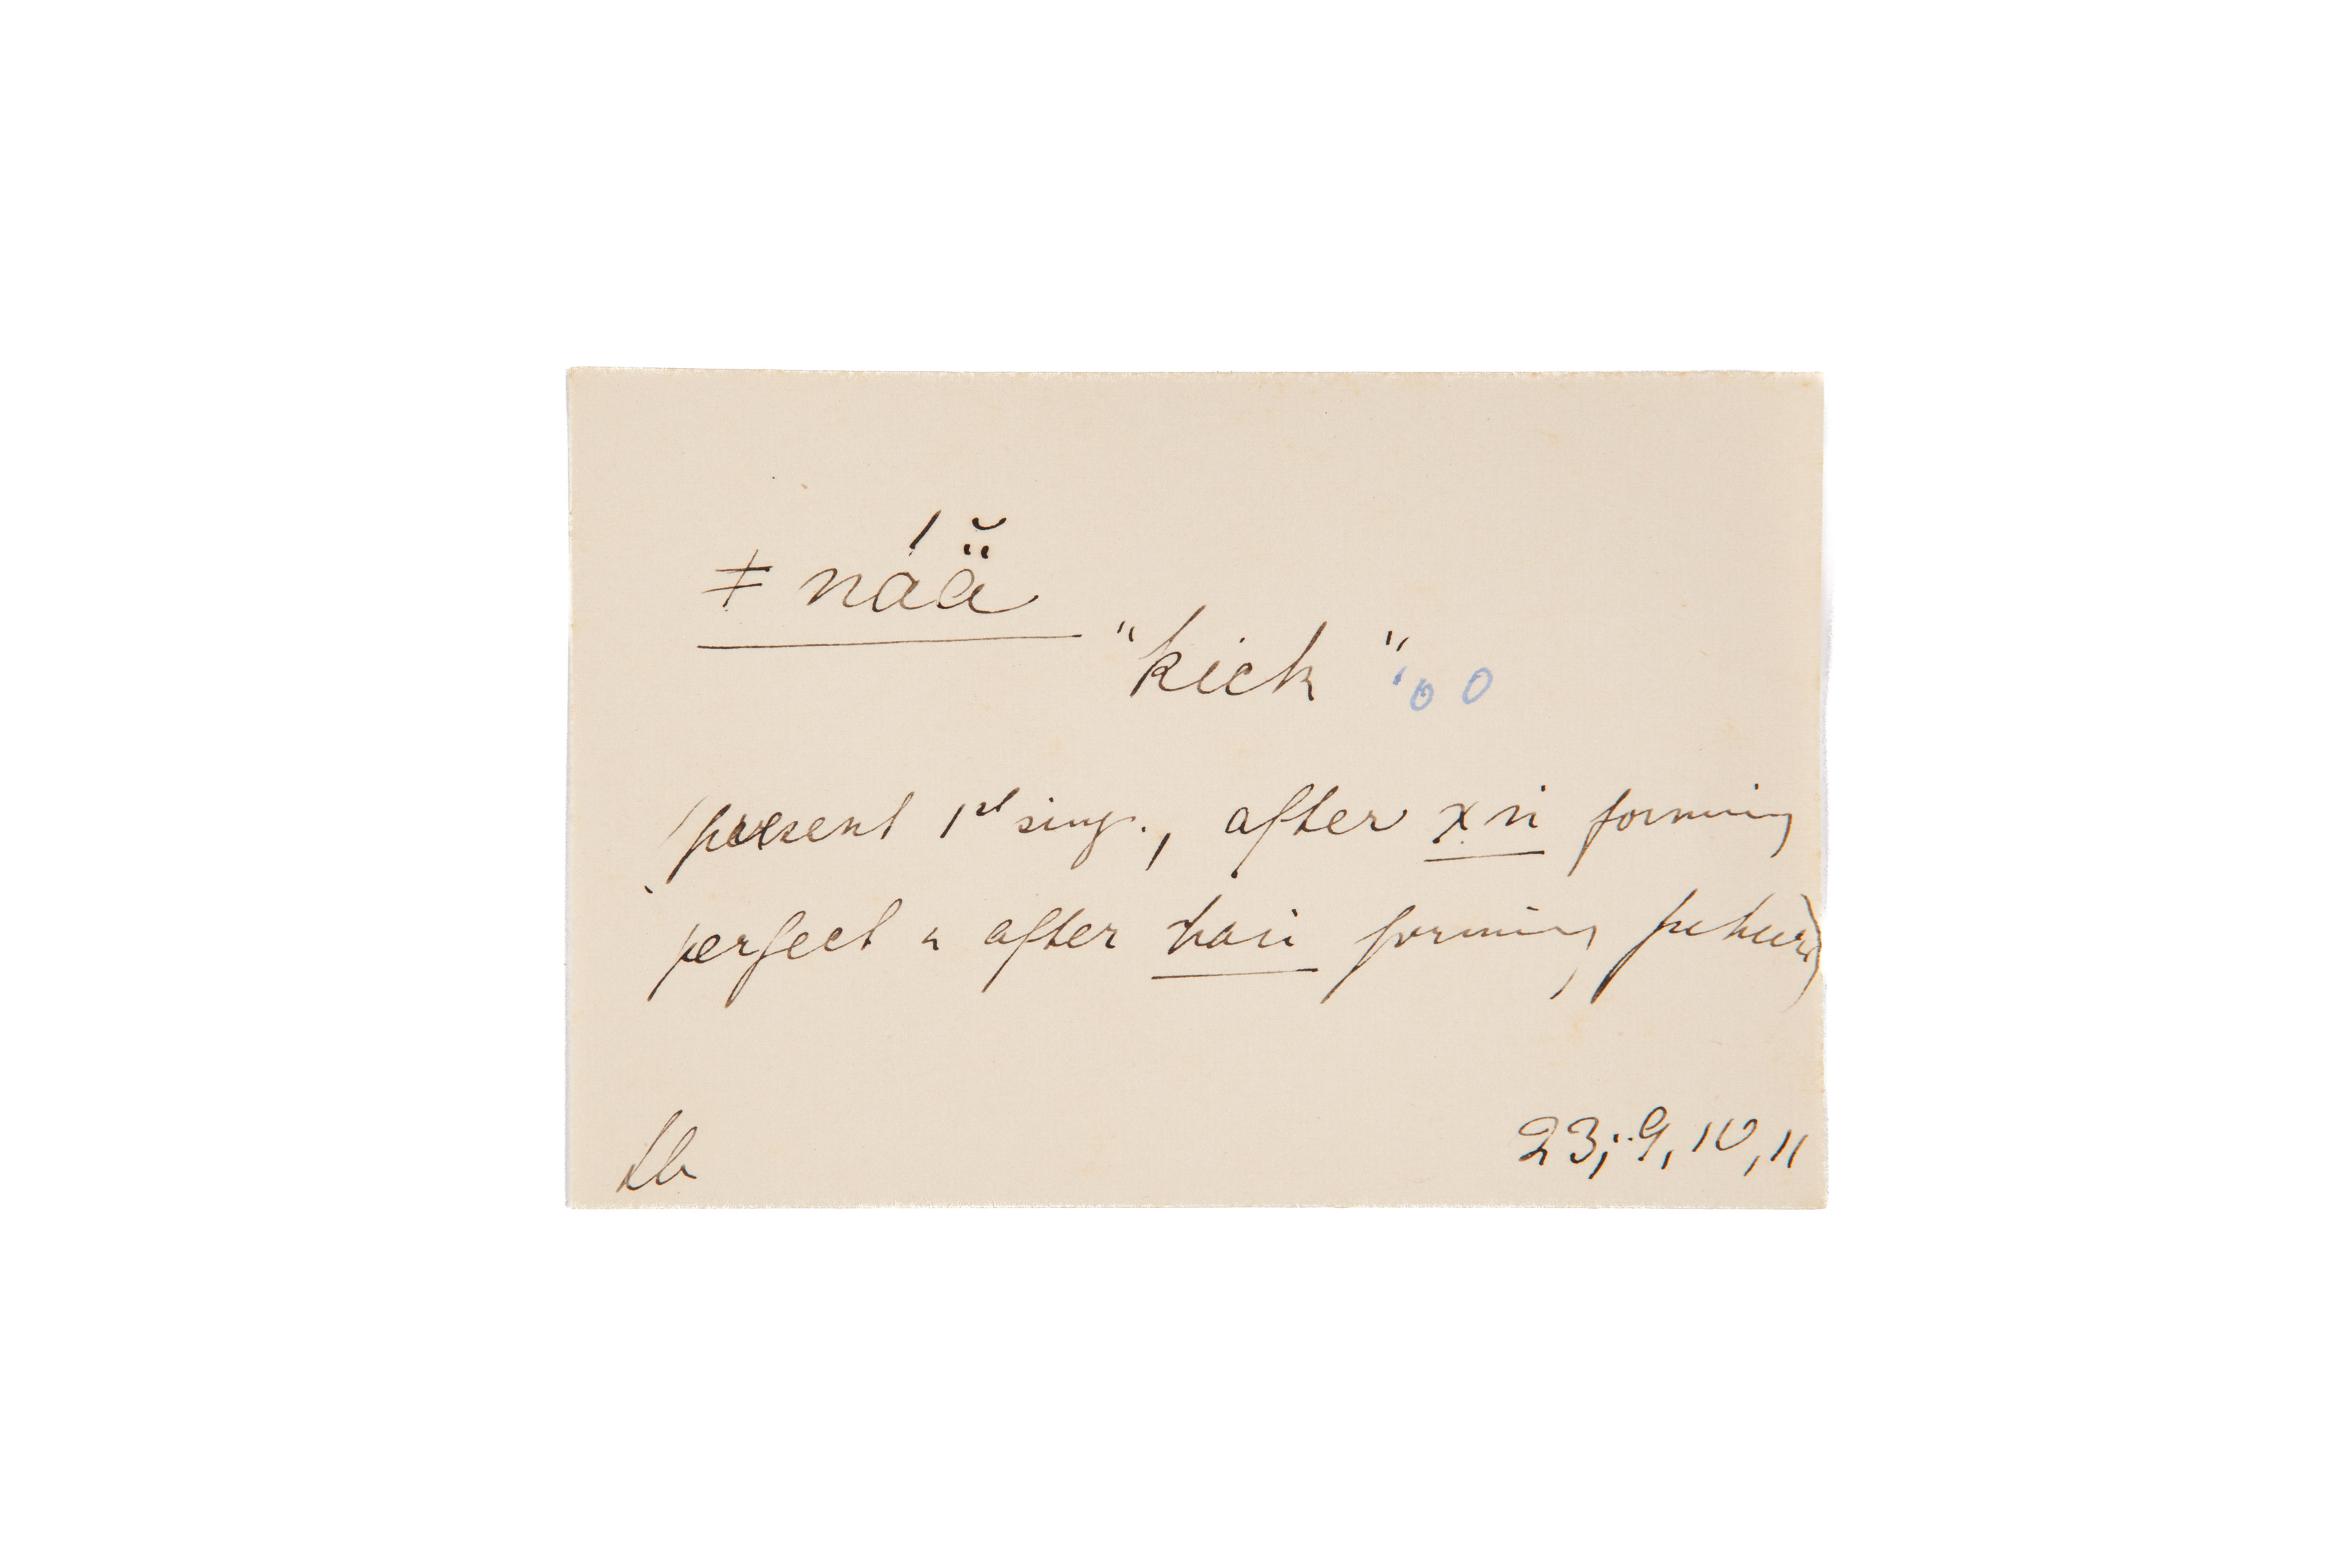 ǂ náä̆
"kick"
(present 1st sing., after xii forming
perfect & after haii forming future)
Lb
23; 9, 10, 11